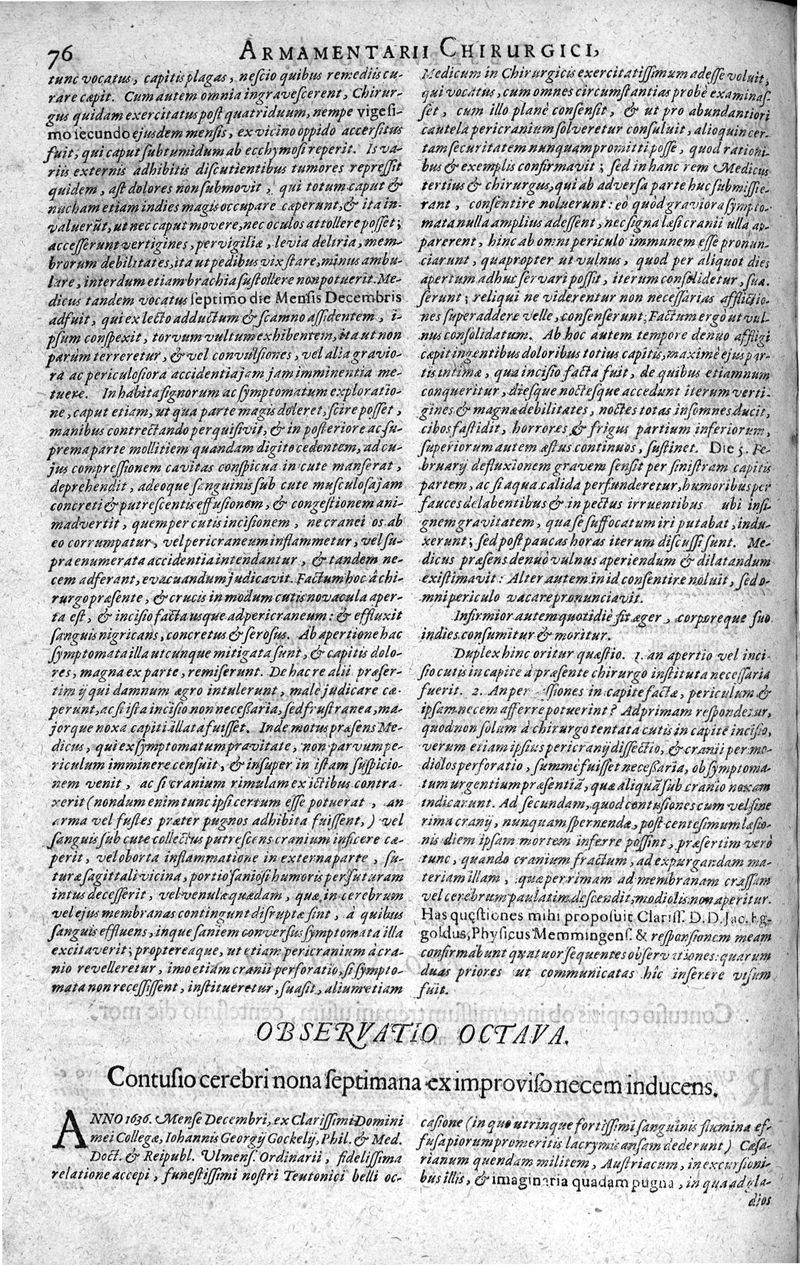 76 ARMAMENTARII CHIRURGICI,
tunc vocatus, capitis plagas, nescio quibus remediis cu-
rare cœpit. Cum autem omnia ingravescerent, Chirur-
gus quidam exercitatus post quatriduum, nempe vigesi-
mo secundo ejusdem mensis, ex vicino oppido accersitus
fuit, qui caput subtumidum ab ecchymosi reperit. Is va-
riis externis adhibitis discutientibus tumores repressit
quidem, ast dolores non submovit, qui totum caput &
nucham etiam indies magis occupare cœperunt, & ita in-
valuerũt, ut nec caput movere, nec oculos attollere posset;
accesserunt vertigines, pervigiliæ, levia deliria, mem-
brorum debilitates, ita ut pedibus vix stare, minus ambu-
lare, interdum etiam brachia sustollere non potuerit. Me-
dicus tandem vocatus septimo die Mensis Decembris
adfuit, qui ex lecto adductum & scamno assidentem, i-
psum conspexit, torvum vultum exhibentem, ita ut non
parùm terreretur, & vel convulsiones, vel alia gravio-
ra ac periculosiora accidentia jam jam imminentia me-
tuere. Inhabita signorum ac symptomatum exploratio-
ne, caput etiam, ut qua parte magis doleret, scire posset,
manibus contrectando perquisivit, & in posteriore ac su-
prema parte mollitiem quandam digito cedentem, ad cu-
jus compressionem cavitas conspicua in cute manserat,
deprehendit, adeoque sanguinis sub cute musculosa jam
concreti & putrescentis effusionem, & congestionem ani-
madvertit, quem per cutis incisionem, ne cranei os ab
eo corrumpatur, vel pericraneum inflammetur, vel su-
pra enumerata accidentia intendantur, & tandem ne-
cem adferant, evacuandum judicavit. Factum hoc à chi-
rurgo præsente, & crucis in modum cutis novacula aper-
ta est, & incisio facta usque ad pericraneum: & effluxit
sanguis nigricans, concretus & serosus. Ab apertione hac
symptomata illa utcunque mitigata sunt, & capitis dolo-
res, magna ex parte, remiserunt. De hac re alii præser-
tim ij qui damnum ægro intulerunt, male judicare cœ-
perunt, ac si ista incisio non necessaria, sed frustranea, ma-
jorque noxa capiti illata fuisset. Inde motus præsens Me-
dicus, qui ex symptomatum pravitate, non parvum pe-
riculum imminere censuit, & insuper in istam suspicio-
nem venit, ac si cranium rimulam ex ictibus contra-
xerit (nondum enim tunc ipsi certum esse potuerat, an
arma vel fustes præter pugnos adhibita fuissent,) vel
sanguis sub cute collectus putrescens cranium inficere cœ-
perit, vel oborta inflammatione in externa parte, su-
turæ sagittali vicina, portio saniosi humoris per suturam
intus decesserit, vel venulæ quædam, quæ in cerebrum
vel ejus membranas contingunt disruptæ sint, à quibus
sanguis effluens, inque saniem conversus symptomata illa
excitaverit; proptereaque, ut etiam pericranium à cra-
nio revelleretur, imo etiam cranii perforatio, si sympto-
mata non recessissent, institueretur, suasit, alium etiam
Medicum in Chirurgicis exercitatissimum adesse voluit,
qui vocatus, cum omnes circumstantias probè examinas-
set, cum illo planè consensit, & ut pro abundantiori
cautela pericranium solveretur consuluit, alioquin cer-
tam securitatem nunquam promitti posse, quod rationi-
bus & exemplis confirmavit; sed in hanc rem Medicus
tertius & chirurgus, qui ab adversa parte huc submissi e-
rant, consentire noluerunt: eò quòd graviora sympto-
mata nulla amplius adessent, nec signa læsi cranii ulla ap-
parerent, hinc ab omni periculo immunem esse pronun-
ciarunt, quapropter ut vulnus, quod per aliquot dies
apertum adhuc servari possit, iterum consolidetur, sua-
serunt; reliqui ne viderentur non necessarias afflictio-
nes superaddere velle, consenserunt; Factum ergò ut vul-
nus consolidatum. Ab hoc autem tempore denuo affligi
cœpit ingentibus doloribus totius capitis, maximè ejus par-
tis intimæ, qua incisio facta fuit, de quibus etiamnum
conqueritur, diesque noctesque accedunt iterum verti-
gines & magnæ debilitates, noctes totas insomnes ducit,
cibos fastidit, horrores & frigus partium inferiorum,
superiorum autem æstus continuos, sustinet. Die 3. Fe-
bruarij defluxionem gravem sensit per sinistram capitis
partem, ac si aqua calida perfunderetur, humoribus per
fauces delabentibus & in pectus irruentibus ubi insi-
gnem gravitatem, qua se suffocatum iri putabat, indu-
xerunt; sed post paucas horas iterum discussi sunt. Me-
dicus præsens denuo vulnus aperiendum & dilatandum
existimavit: Alter autem in id consentire noluit, sed o-
mni periculo vacare pronunciavit.
Infirmior autem quotidiè fit æger, corporeque suo
indies consumitur & moritur.
Duplex hinc oritur quæstio. 1. an apertio vel inci-
sio cutis in capite à præsente chirurgo instituta necessaria
fuerit. 2. An per ssiones in capite factæ, periculum &
ipsam necem afferre potuerint? Ad primam respondetur,
quod non solum à chirurgo tentata cutis in capite incisio,
verum etiam ipsius pericranij dissectio, & cranii per mo-
diolos perforatio, summè fuisset necessaria, ob symptoma-
tum urgentium præsentiâ, quæ aliquã sub cranio noxam
indicarunt. Ad secundam, quod contusiones cum vel sine
rima cranij, nunquam spernendæ, post centesimum læsio-
nis diem ipsam mortem inferre possint, præsertim verò
tunc, quando cranium fractum, ad expurgandam ma-
teriam illam, quæ per rimam ad membranam crassam
vel cerebrum paulatim descendit, modiolis non aperitur.
Has quęstiones mihi proposuit Clariss. D. D. Jac. Eg-
goldus, Physicus Memmingens. & responsionem meam
confirmabunt quatuor sequentes observationes: quarum
duas priores ut communicatas hîc inserere visum
fuit.
OBSERVATIO OCTAVA.
Contusio cerebri nona septimana ex improviso necem inducens.
ANNO 1636. Mense Decembri, ex Clarissimi Domini
mei Collegæ, Iohannis Georgij Gockelij, Phil. & Med.
Doct. & Reipubl. Ulmens. Ordinarii, fidelissima
relatione accepi, funestissimi nostri Teutonici belli oc-
casione (in quo utrinque fortissimi sanguinis flumina ef-
fusa piorum promeritis lacrymis ansam dederunt) Cæsa-
rianum quendam militem, Austriacum, in excursioni-
bus illis, & imaginaria quadam pugna, in qua ad gla-
dios